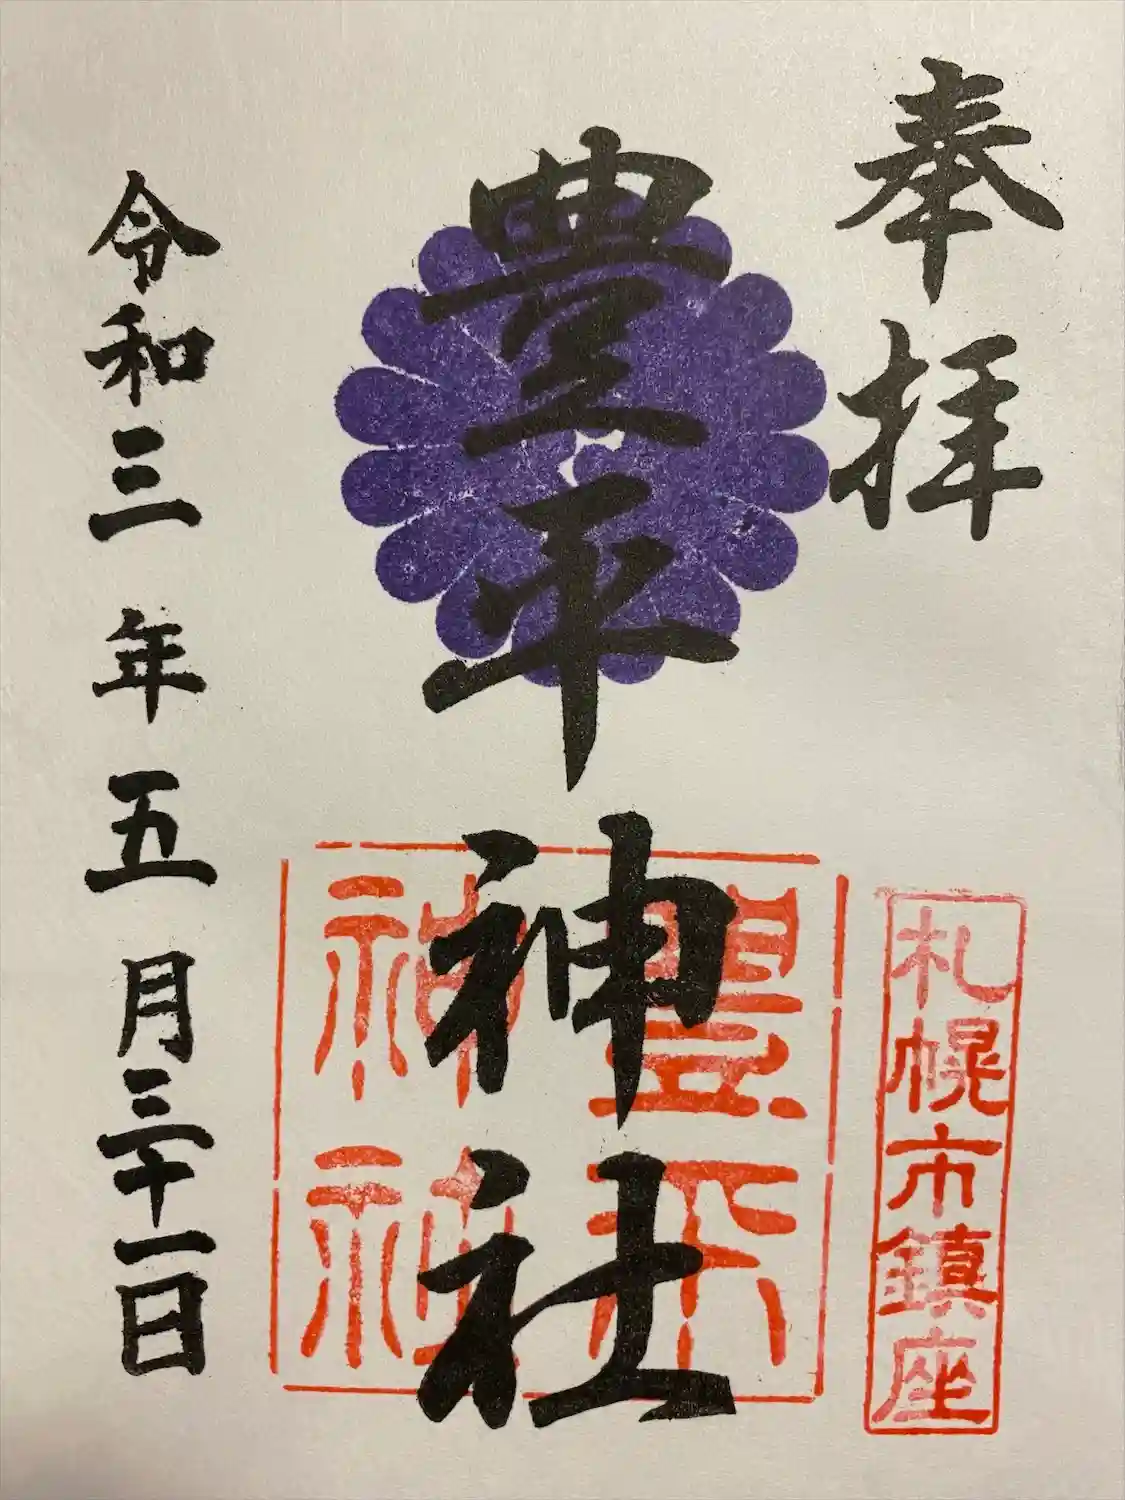 奉拝
札幌市鎮座
豊平神社
豊平
神社
令和三年五月三十一日